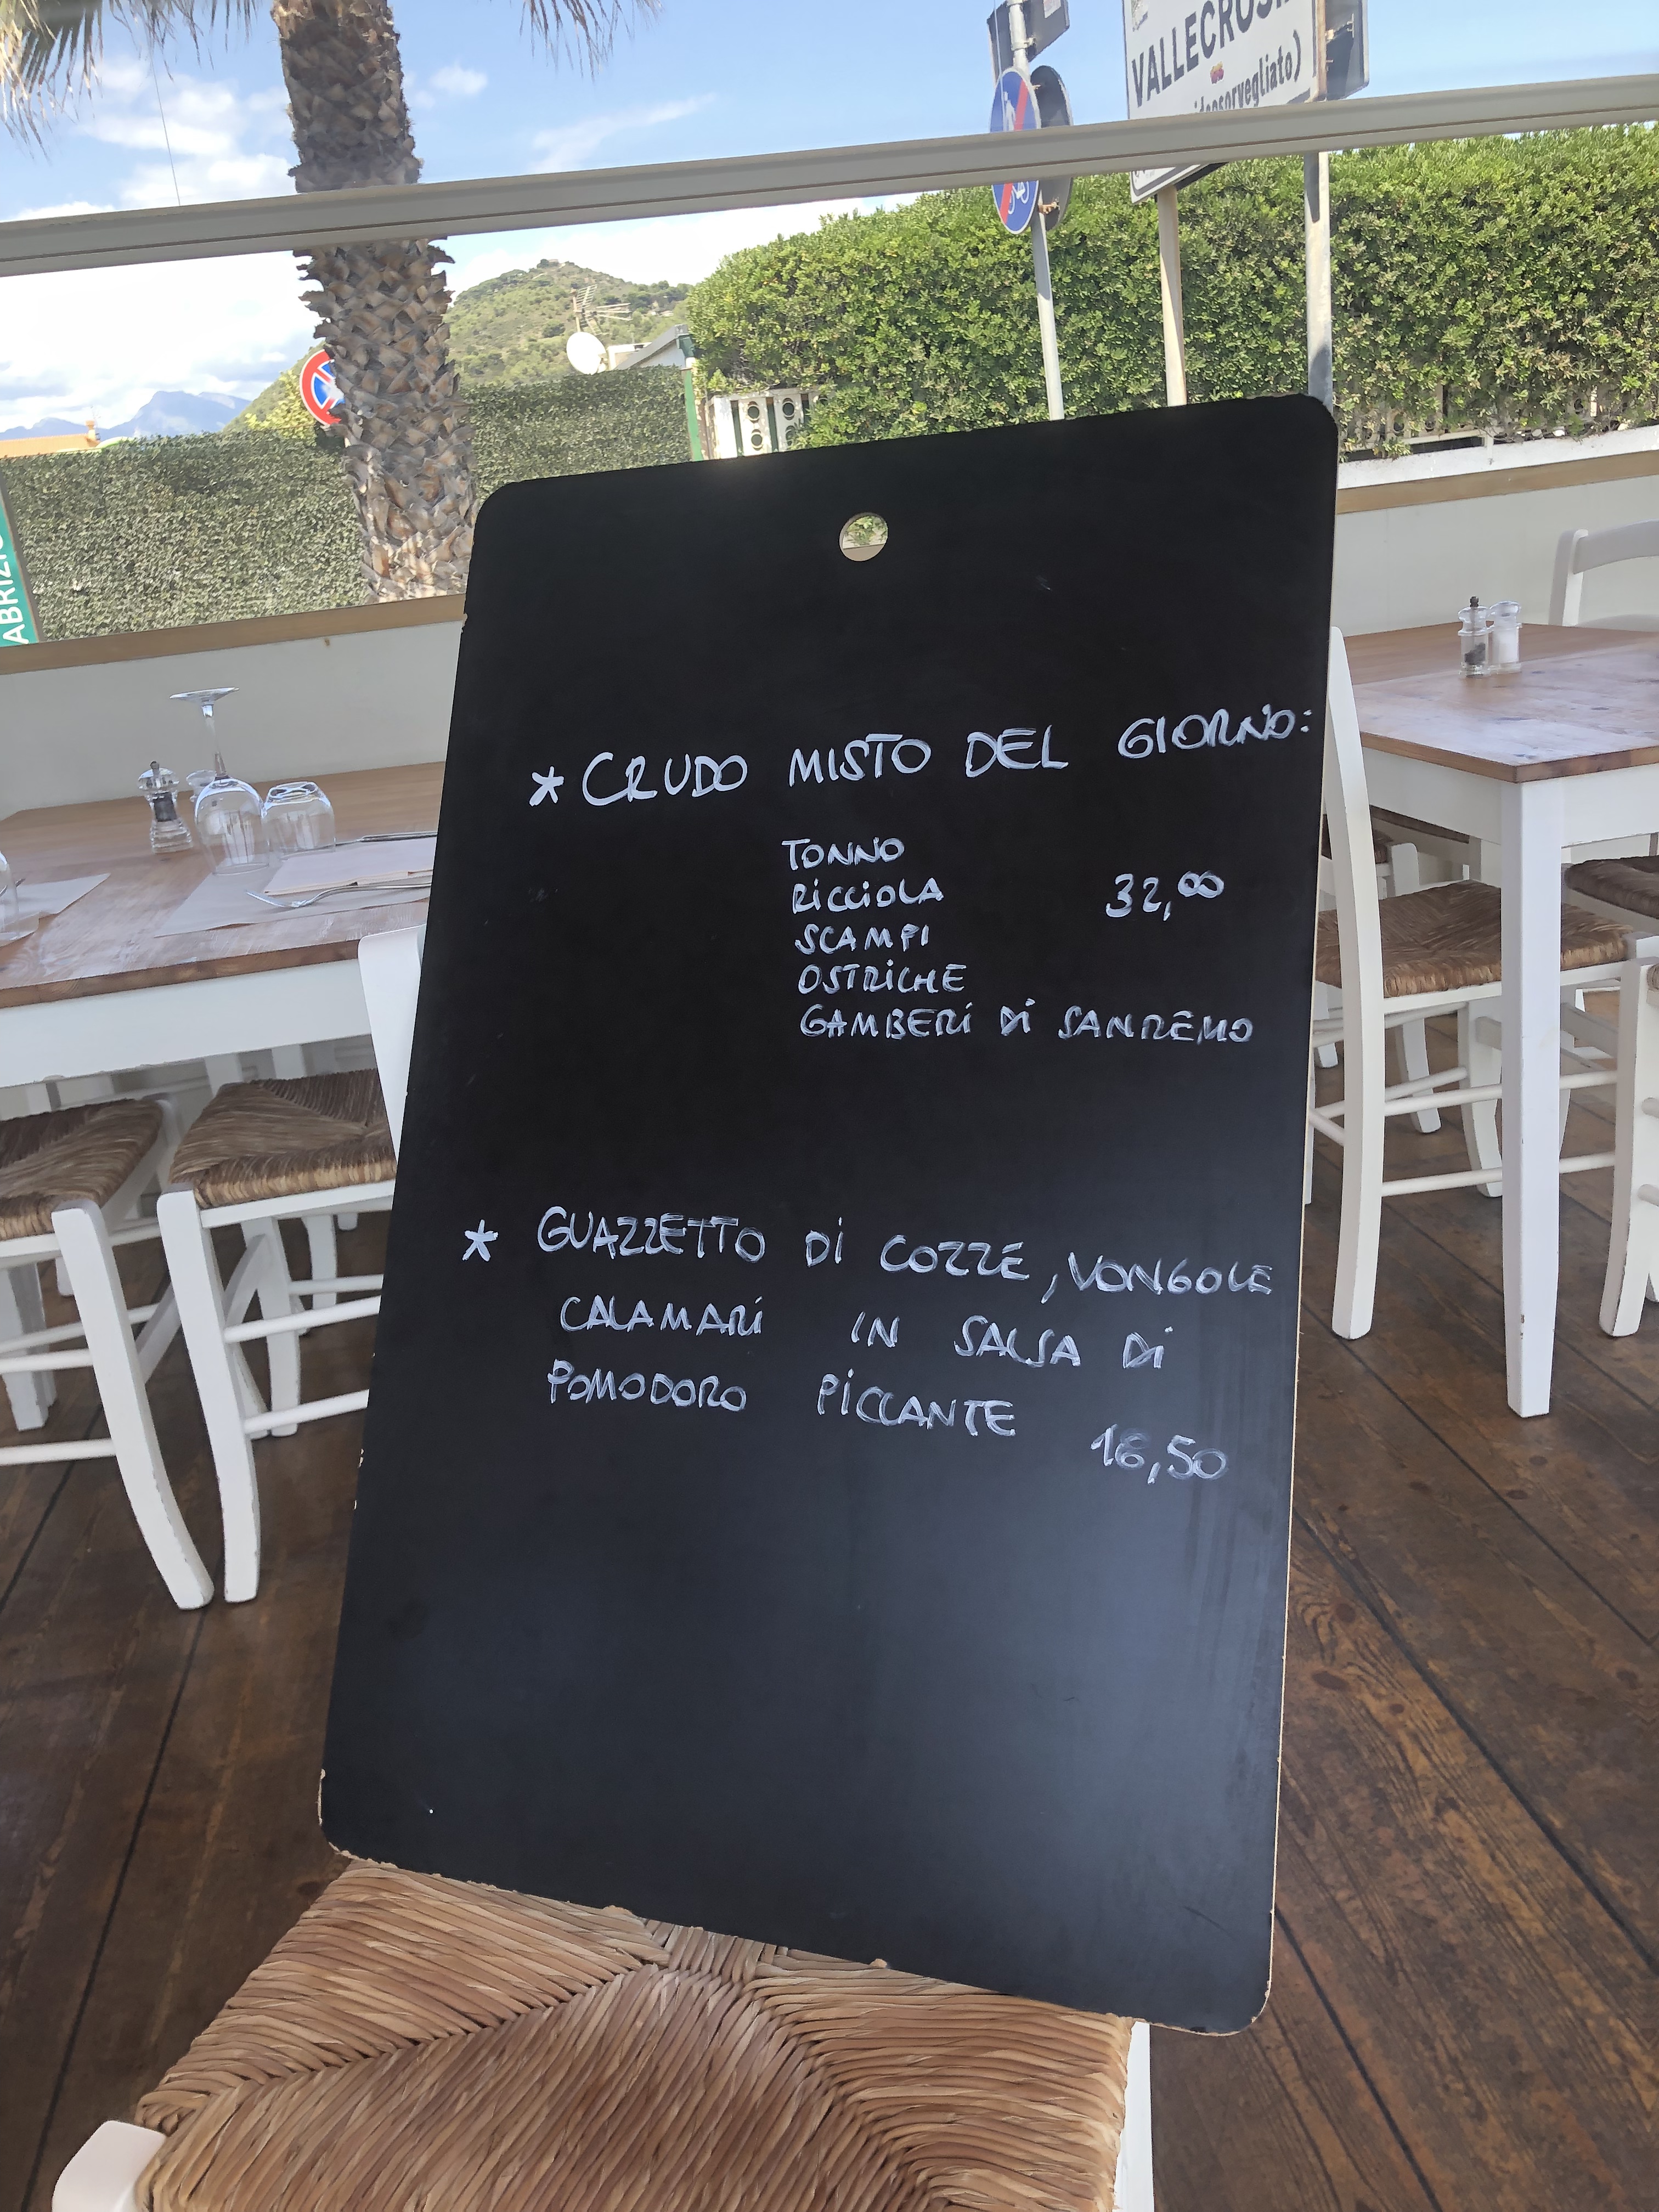 VALLECROSIA
ABRIZIO
* CRUDO MISTO DEL GIORNO:
TONNO
RICCIOLA 32,00
SCAMPI
OSTRICHE
GAMBERI DI SANREMO
* GUAZZETTO DI COZZE, VONGOLE
CALAMARI IN SALSA DI
POMODORO PICCANTE
16,50